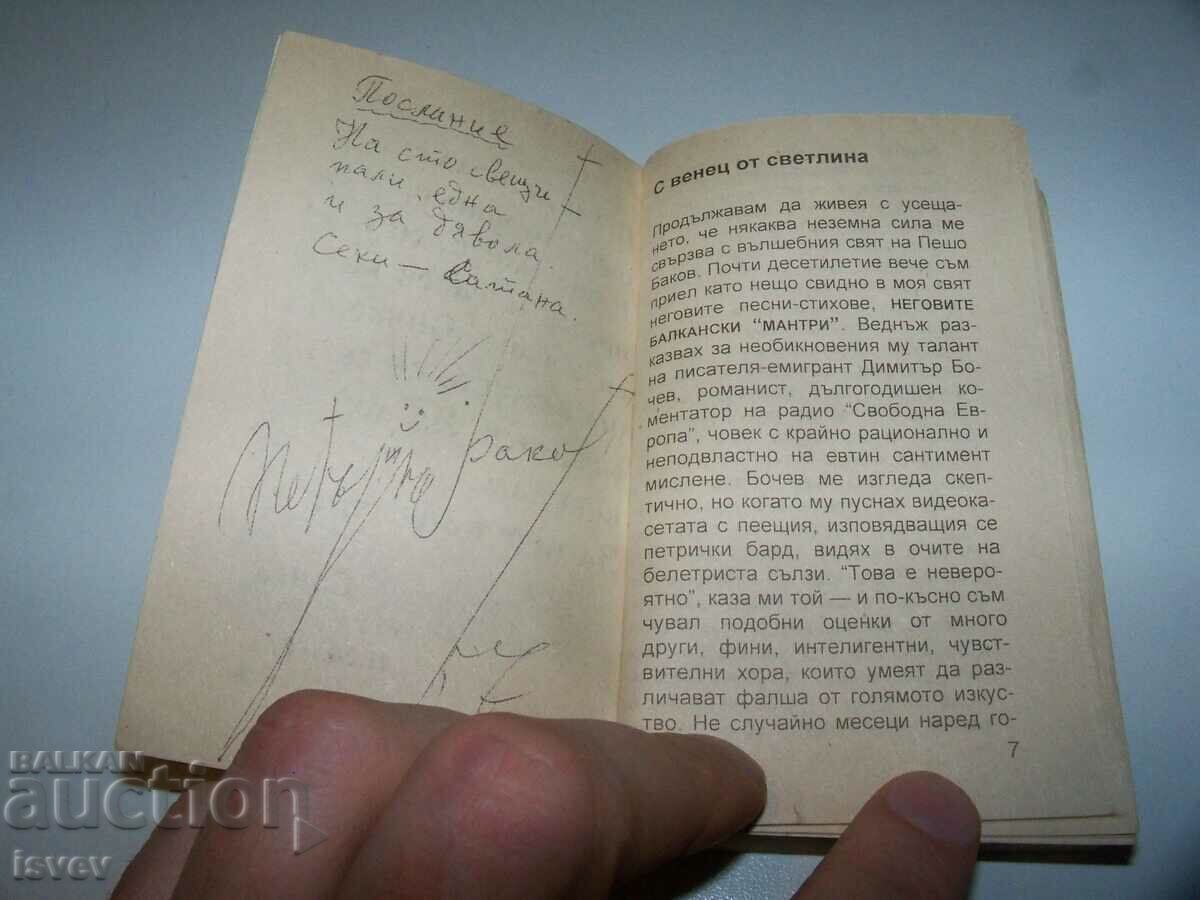 Послание
На сто свещи
пали една
и за дявола.
Секи — Сатана.
Петър
С венец от светлина
Продължавам да живея с усеща-
нето, че някаква неземна сила ме
свързва с вълшебния свят на Пешо
Баков. Почти десетилетие вече съм
приел като нещо свидно в моя свят
неговите песни-стихове, НЕГОВИТЕ
БАЛКАНСКИ “МАНТРИ”. Веднъж раз-
казвах за необикновения му талант
на писателя-емигрант Димитър Бо-
чев, романист, дългогодишен ко-
ментатор на радио “Свободна Ев-
ропа”, човек с крайно рационално и
неподвластно на евтин сантимент
мислене. Бочев ме изгледа скеп-
тично, но когато му пуснах видеока-
сетата с пеещия, изповядващия се
петрички бард, видях в очите на
белетриста сълзи. “Това е неверо-
ятно”, каза ми той — и по-късно съм
чувал подобни оценки от много
други, фини, интелигентни, чувс-
твителни хора, които умеят да раз-
личават фалша от голямото изкус-
тво. Не случайно месеци наред го-
7
BALKAN
auction
isvev